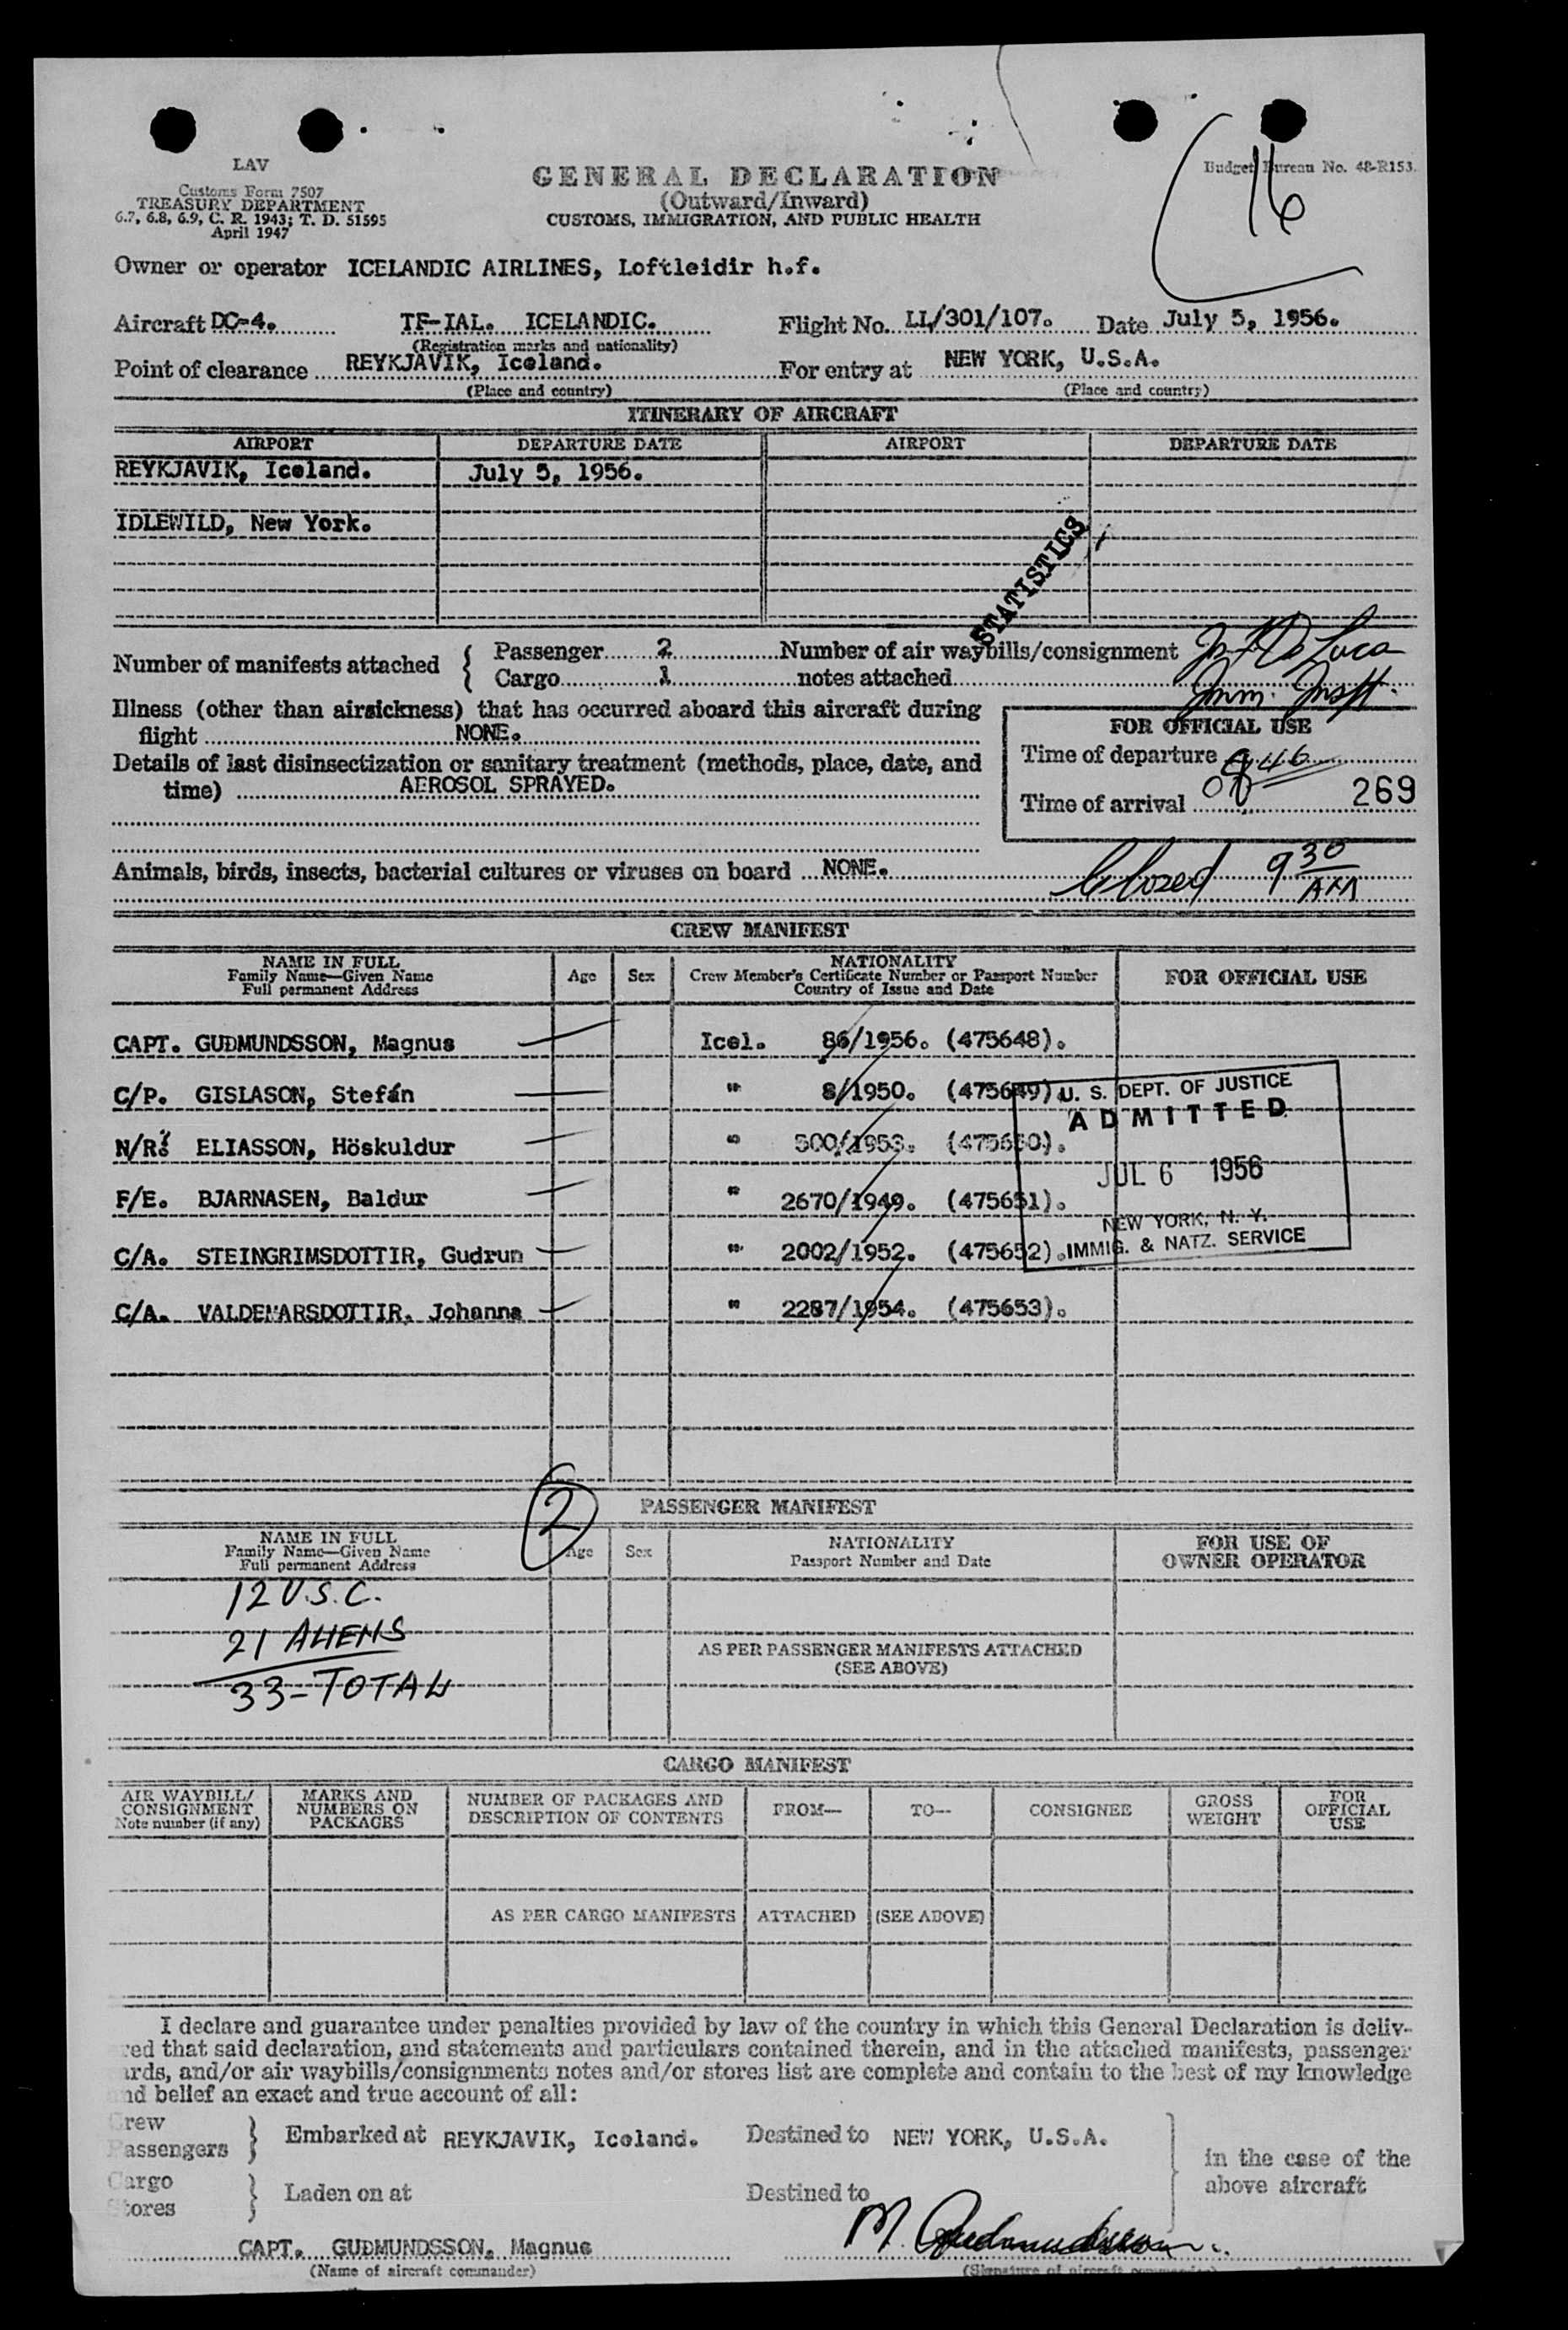 LAV
Customs Form 7507
TREASURY DEPARTMENT
6.7, 6.8, 6.9, C. R. 1943; T. D. 51595
April 1947
GENERAL DECLARATION
(Outward/Inward)
CUSTOMS, IMMIGRATION, AND PUBLIC HEALTH
Budget Bureau No. 48-R153.
16
Owner or operator ICELANDIC AIRLINES, Loftleidir h.f.
Aircraft DC-4. TF-IAL. ICELANDIC. Flight No. LL/301/107. Date July 5, 1956.
(Registration marks and nationality)
Point of clearance REYKJAVIK, Iceland. For entry at NEW YORK, U.S.A.
(Place and country) (Place and country)
ITINERARY OF AIRCRAFT
AIRPORT DEPARTURE DATE AIRPORT DEPARTURE DATE
REYKJAVIK, Iceland. July 5, 1956.
IDLEWILD, New York.
STATISTICS
Number of manifests attached { Passenger 2 Number of air waybills/consignment
Cargo 1 notes attached
De Luca
Imm. Inspt.
Illness (other than airsickness) that has occurred aboard this aircraft during
flight NONE.
Details of last disinsectization or sanitary treatment (methods, place, date, and
time) AEROSOL SPRAYED.
FOR OFFICIAL USE
Time of departure
Time of arrival 269
Animals, birds, insects, bacterial cultures or viruses on board NONE.
Closed 9 30 AM
CREW MANIFEST
NAME IN FULL
Family Name—Given Name
Full permanent Address
Age
Sex
NATIONALITY
Crew Member's Certificate Number or Passport Number
Country of Issue and Date
FOR OFFICIAL USE
CAPT. GUDMUNDSSON, Magnus Icel. 86/1956. (475648).
C/P. GISLASON, Stefán " 8/1950. (475649).
N/R. ELIASSON, Höskuldur " 500/1953. (475650).
F/E. BJARNASEN, Baldur " 2670/1949. (475651).
C/A. STEINGRIMSDOTTIR, Gudrun " 2002/1952. (475652).
C/A. VALDEMARSDOTTIR, Johanna " 2287/1954. (475653).
U. S. DEPT. OF JUSTICE
ADMITTED
JUL 6 1956
NEW YORK, N. Y.
IMMIG. & NATZ. SERVICE
2
PASSENGER MANIFEST
NAME IN FULL
Family Name—Given Name
Full permanent Address
Age
Sex
NATIONALITY
Passport Number and Date
FOR USE OF
OWNER OPERATOR
12 U.S.C.
21 ALIENS
33 = TOTAL
AS PER PASSENGER MANIFESTS ATTACHED
(SEE ABOVE)
CARGO MANIFEST
AIR WAYBILL/
CONSIGNMENT
Note number (if any)
MARKS AND
NUMBERS ON
PACKAGES
NUMBER OF PACKAGES AND
DESCRIPTION OF CONTENTS
FROM—
TO—
CONSIGNEE
GROSS
WEIGHT
FOR
OFFICIAL
USE
AS PER CARGO MANIFESTS ATTACHED (SEE ABOVE)
I declare and guarantee under penalties provided by law of the country in which this General Declaration is deliv-
red that said declaration, and statements and particulars contained therein, and in the attached manifests, passenger
ards, and/or air waybills/consignments notes and/or stores list are complete and contain to the best of my knowledge
nd belief an exact and true account of all:
Crew
Passengers } Embarked at REYKJAVIK, Iceland. Destined to NEW YORK, U.S.A.
Cargo
Stores } Laden on at Destined to
in the case of the
above aircraft
CAPT. GUDMUNDSSON, Magnus M. Gudmundsson
(Name of aircraft commander) (Signature of aircraft commander)